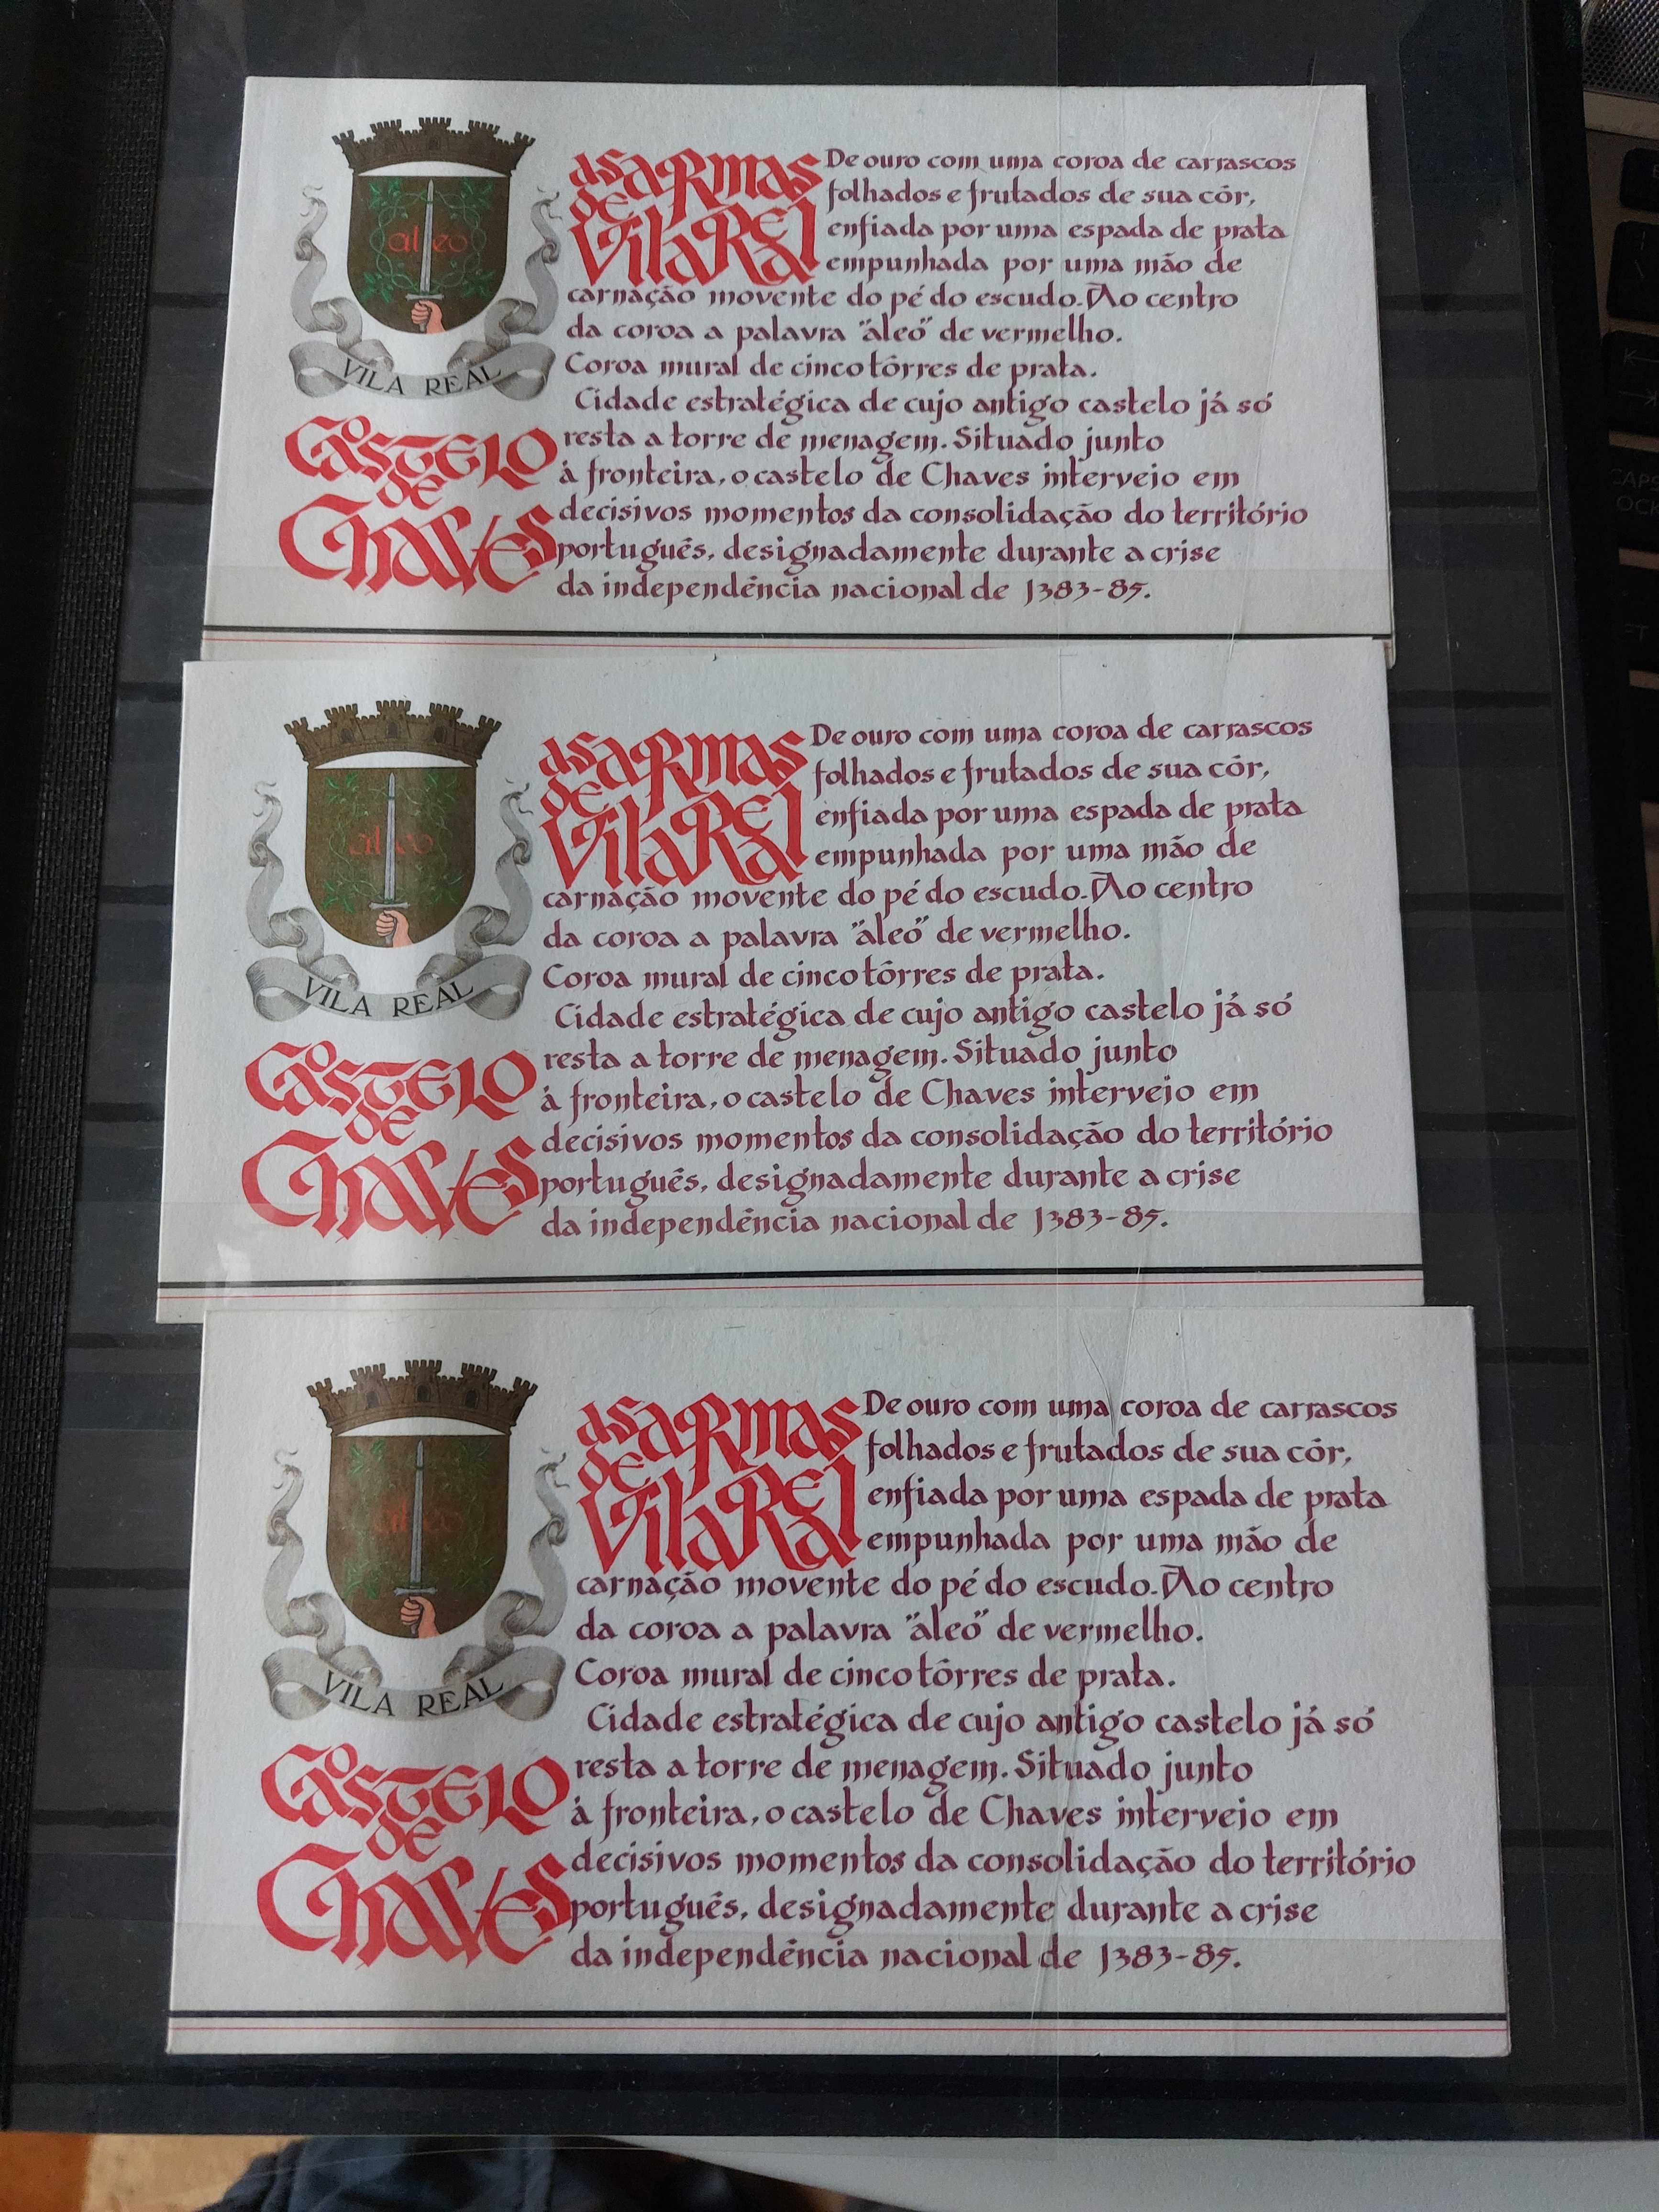 al eo
VILA REAL
As Armas
de
Vila Real
De ouro com uma coroa de carrascos
folhados e frutados de sua côr,
enfiada por uma espada de prata
empunhada por uma mão de
carnação movente do pé do escudo. Ao centro
da coroa a palavra "aleo" de vermelho.
Coroa mural de cinco tôrres de prata.
Castelo
de
Chaves
Cidade estratégica de cujo antigo castelo já só
resta a torre de menagem. Situado junto
à fronteira, o castelo de Chaves interveio em
decisivos momentos da consolidação do território
português, designadamente durante a crise
da independência nacional de 1383-85.
al eo
VILA REAL
As Armas
de
Vila Real
De ouro com uma coroa de carrascos
folhados e frutados de sua côr,
enfiada por uma espada de prata
empunhada por uma mão de
carnação movente do pé do escudo. Ao centro
da coroa a palavra "aleo" de vermelho.
Coroa mural de cinco tôrres de prata.
Castelo
de
Chaves
Cidade estratégica de cujo antigo castelo já só
resta a torre de menagem. Situado junto
à fronteira, o castelo de Chaves interveio em
decisivos momentos da consolidação do território
português, designadamente durante a crise
da independência nacional de 1383-85.
al eo
VILA REAL
As Armas
de
Vila Real
De ouro com uma coroa de carrascos
folhados e frutados de sua côr,
enfiada por uma espada de prata
empunhada por uma mão de
carnação movente do pé do escudo. Ao centro
da coroa a palavra "aleo" de vermelho.
Coroa mural de cinco tôrres de prata.
Castelo
de
Chaves
Cidade estratégica de cujo antigo castelo já só
resta a torre de menagem. Situado junto
à fronteira, o castelo de Chaves interveio em
decisivos momentos da consolidação do território
português, designadamente durante a crise
da independência nacional de 1383-85.